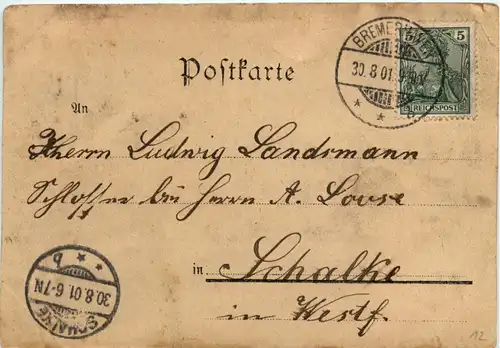 BREMERHAVEN
30.8.01.
5 5
REICHSPOST
Postkarte
An
Herrn Ludwig Landsmann
Schlosser bei Herrn A. Louse
in Schalke
in Westf.
SCHALKE
30.8.01.6-7N
b
12